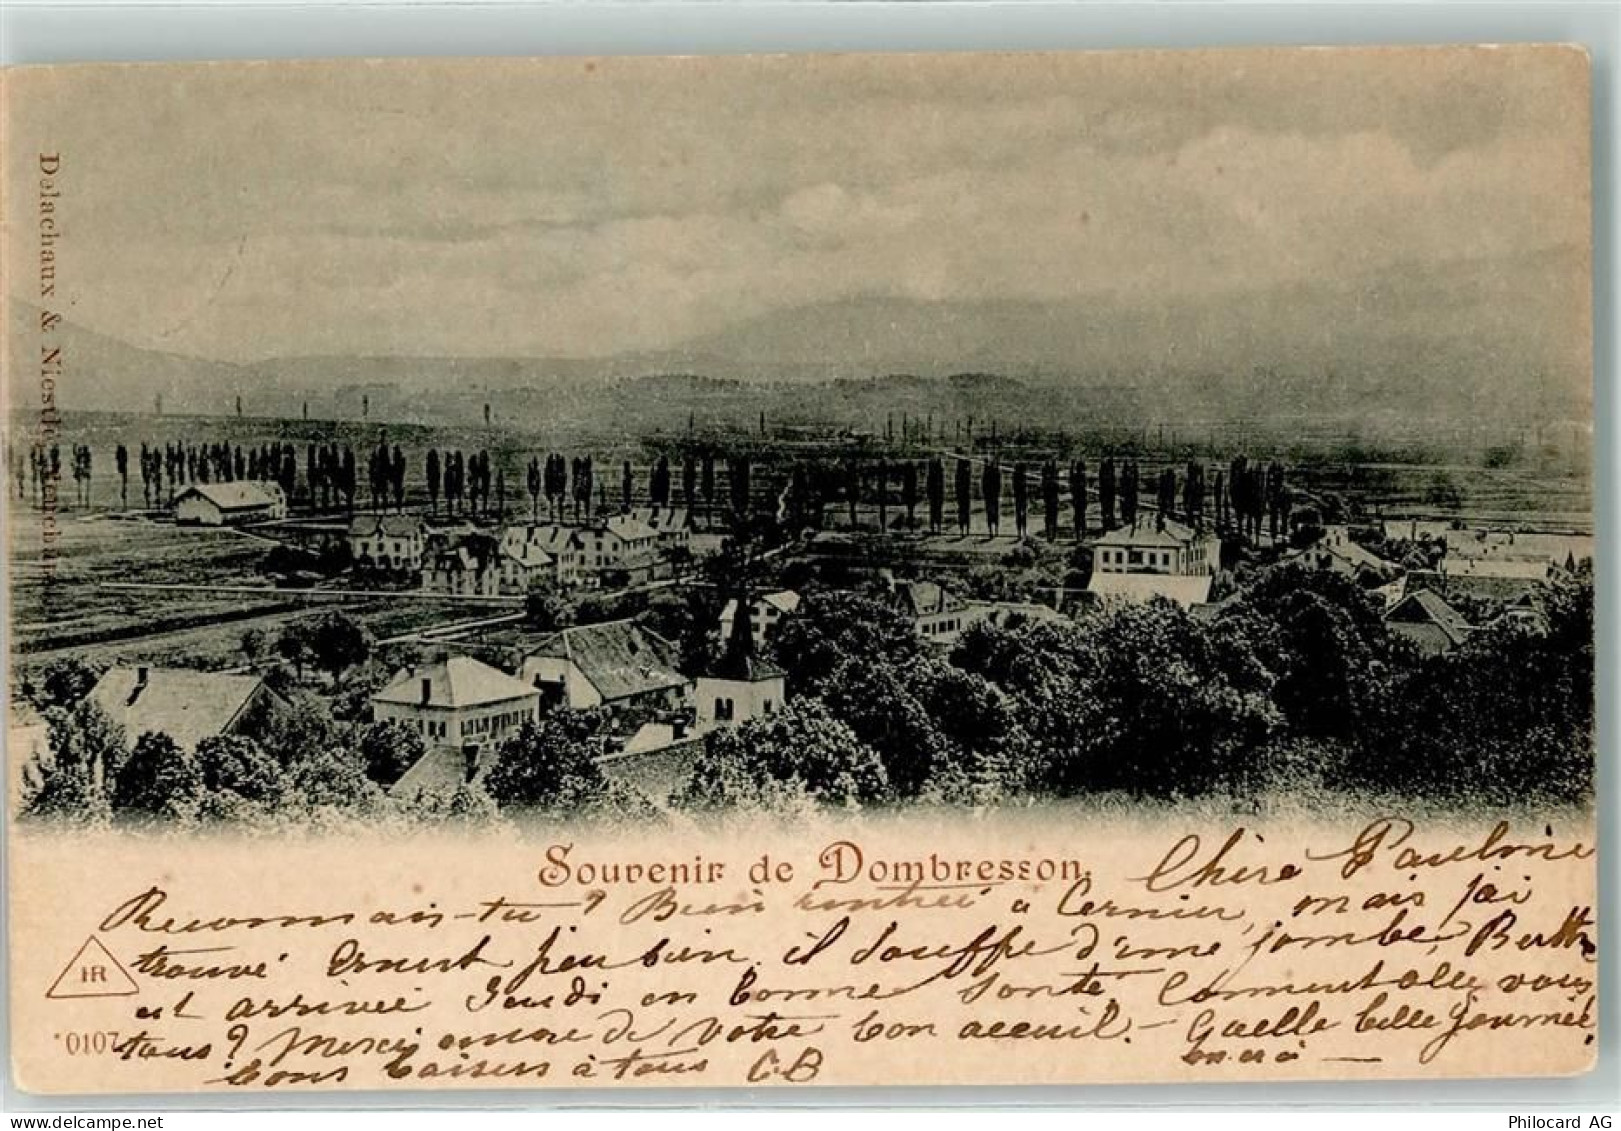 Delachaux & Niestlé,
Souvenir de Dombresson.
Chère Pauline
Reconnais-tu ? Bien rentrée à Cernier, mais j'ai
trouvé Ernest peu bien. il souffre d'une jambe, Berthe
est arrivée Jeudi en bonne santé. Comment allez vous
tous ? Merci encore de votre bon accueil. — Quelle belle Journée
bons baisers à tous C B
HR
0107
Philocard AG